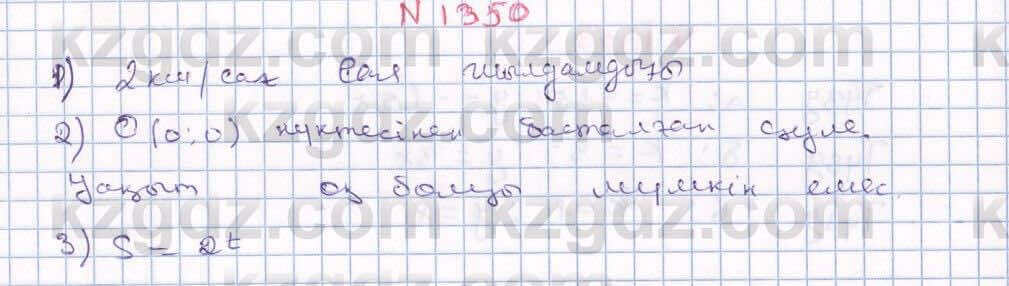 N 1350
1) 2 км/сағ Сал жылдамдығы
2) O (0; 0) нүктесінен басталған сәуле.
Уақыт аз болуы мүмкін емес.
3) S = 2t
kzgdz.com kzgdz.com
kzgdz.com kzgdz.com